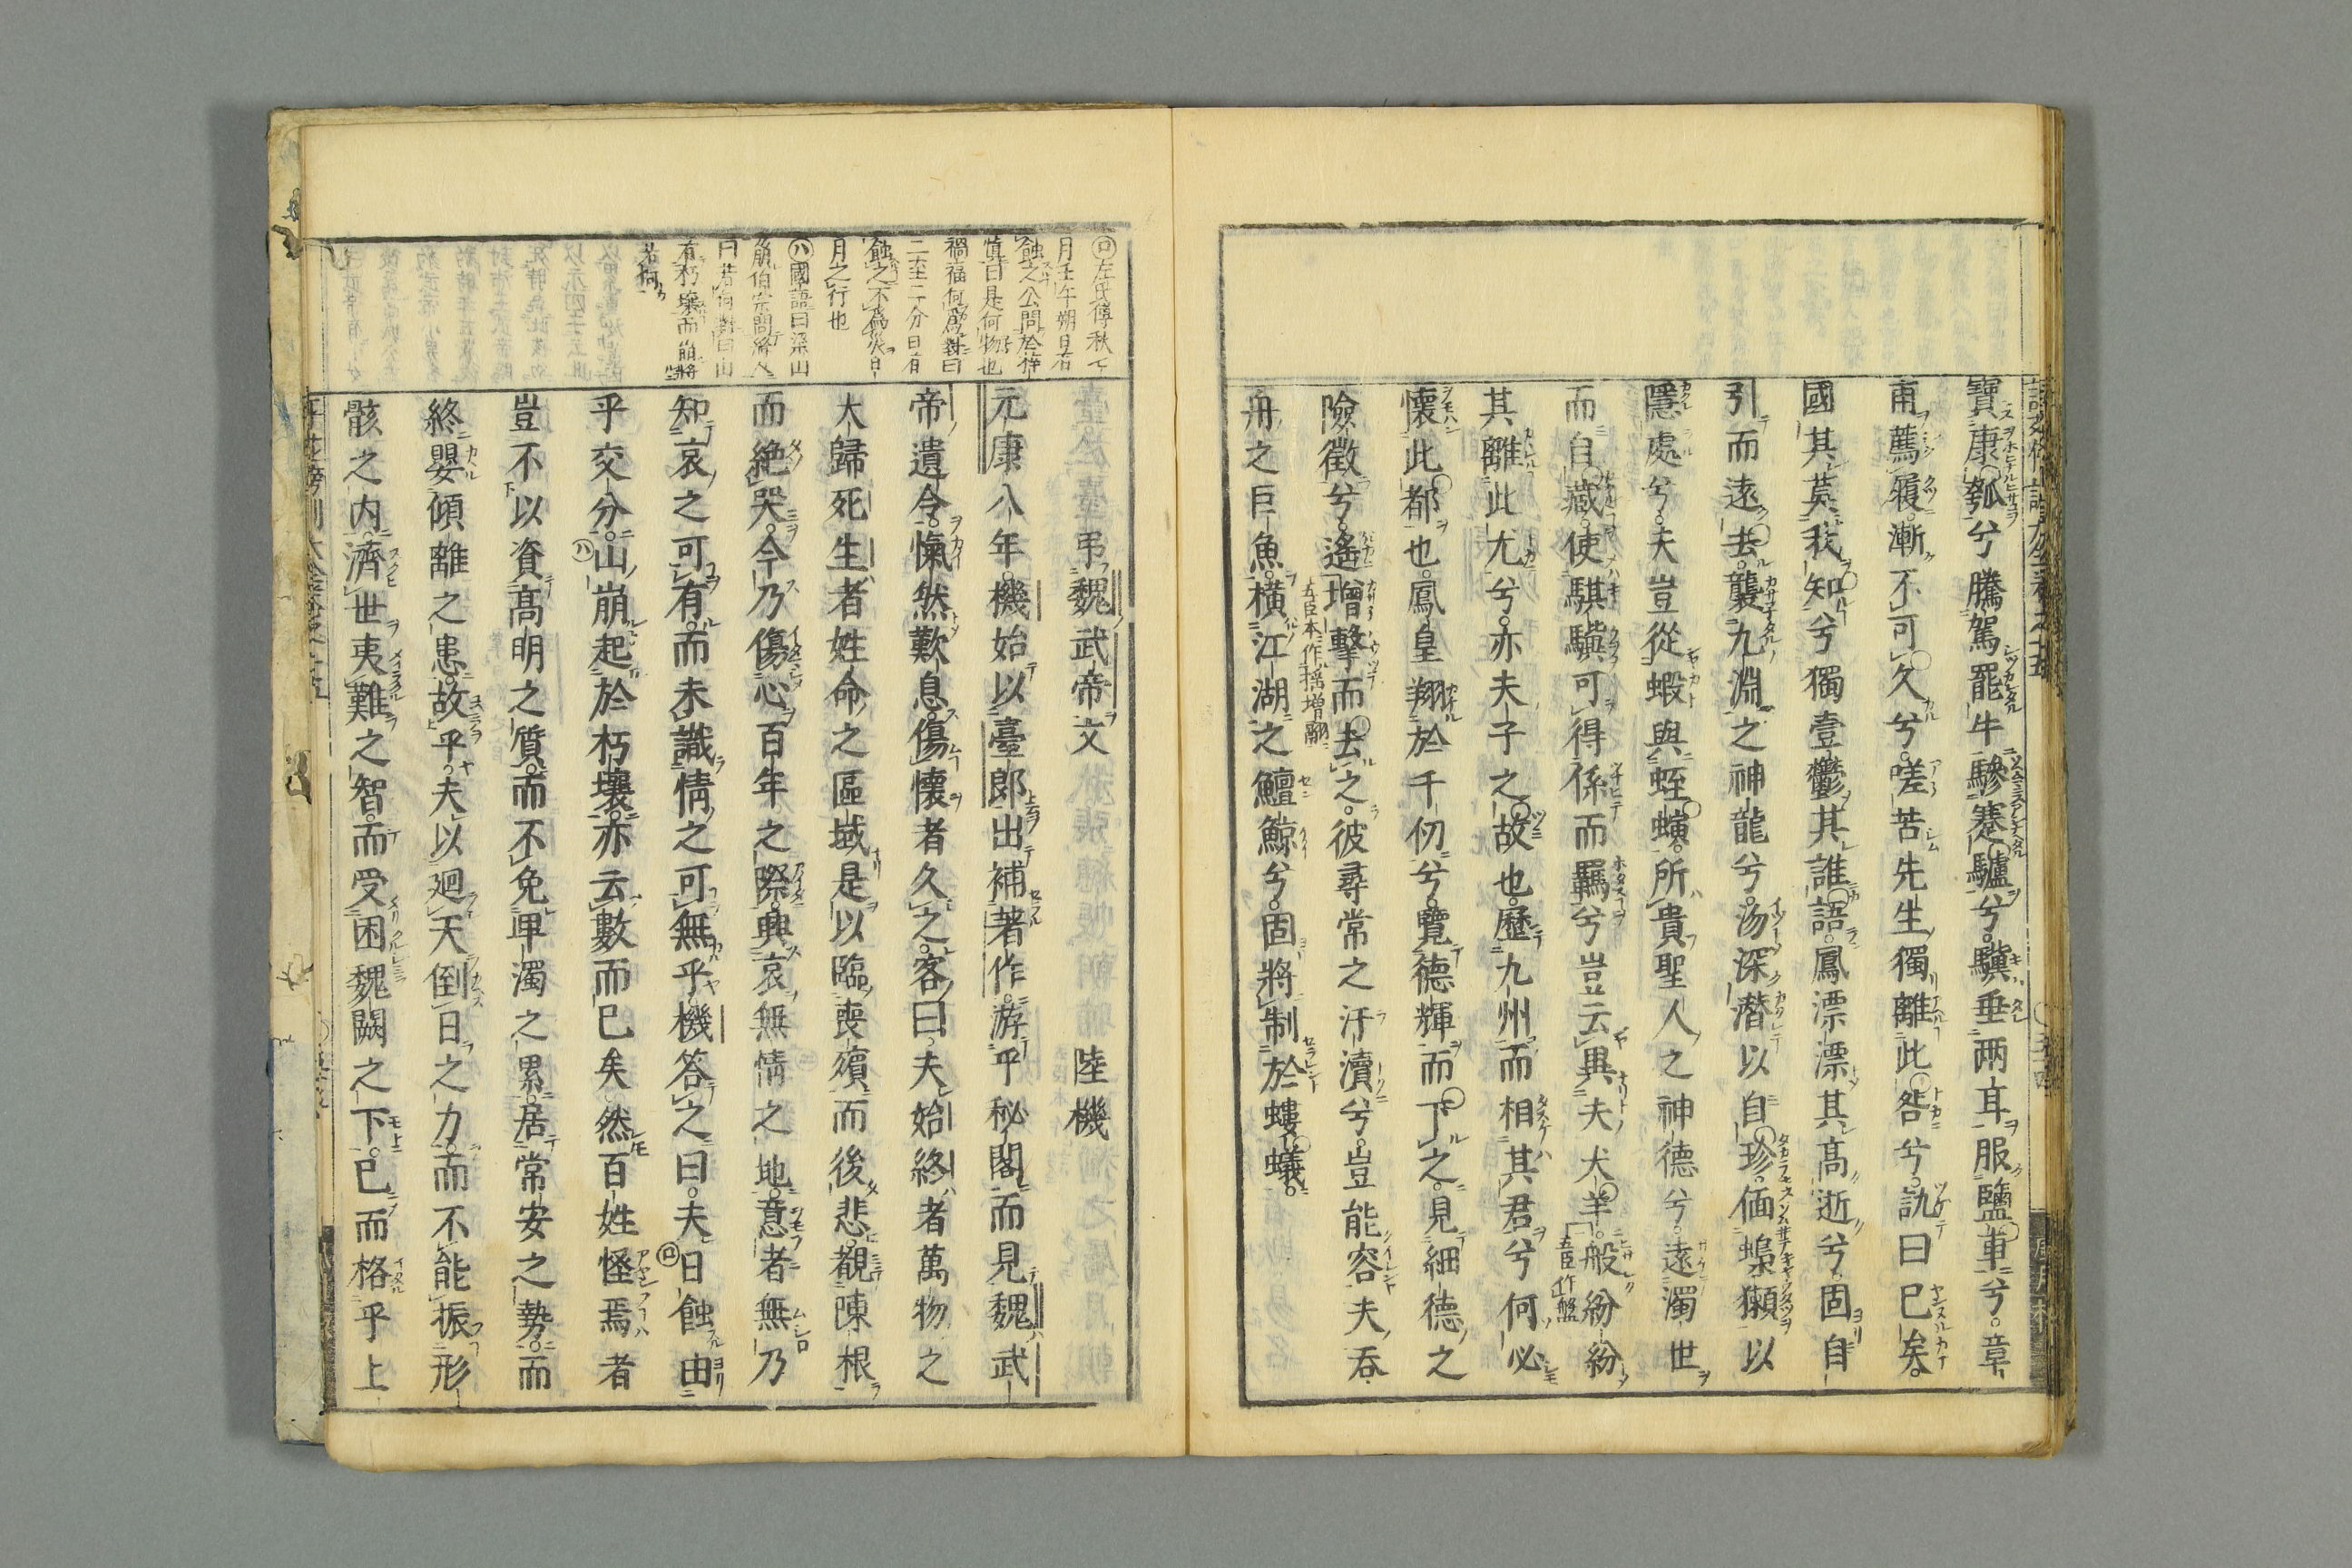 寶康瓠兮騰駕罷牛驂蹇驢兮驥垂兩耳服鹽車兮章
甫薦履漸不可久兮嗟苦先生獨離此咎兮訊曰已矣
國其莫我知兮獨壹鬱其誰語鳳漂漂其高逝兮固自
引而遠去襲九淵之神龍兮沕深潜以自珍偭蟂獺以
隱處兮夫豈從蝦與蛭螾所貴聖人之神德兮遠濁世
而自藏使騏驥可得係而羈兮豈云異夫犬羊般紛紛
五臣作盤
其離此尤兮亦夫子之故也歷九州而相其君兮何必
懷此都也鳳皇翔於千仞兮覽德輝而下之見細德之
險徵兮遙增擊而去之彼尋常之汙瀆兮豈能容夫吞
五臣本作搖增翮
舟之巨魚橫江湖之鱣鯨兮固將制於螻蟻
㋺左氏傳秋七
月壬午朔日有
蝕之公問於梓
慎曰是何物也
禍福何爲對曰
二至二分日有
蝕之不爲災日
月之行也
㋩國語曰梁山
崩伯宗問絳人
曰若何對曰山
有朽壤而崩將
若何
弔魏武帝文　陸機
元康八年機始以臺郎出補著作游乎秘閣而見魏武
帝遺令愾然歎息傷懷者久之客曰夫始終者萬物之
大歸死生者姓命之區域是以臨喪殯而後悲覩陳根
而絶哭今乃傷心百年之際興哀無情之地意者無乃
知哀之可有而未識情之可無乎機答之曰夫㋺日蝕由
乎交分㋩山崩起於朽壤亦云數而已矣然百姓怪焉者
豈不以資高明之質而不免卑濁之累居常安之勢而
終嬰傾離之患故乎夫以廻天倒日之力而不能振形
骸之内濟世夷難之智而受困魏闕之下已而格乎上